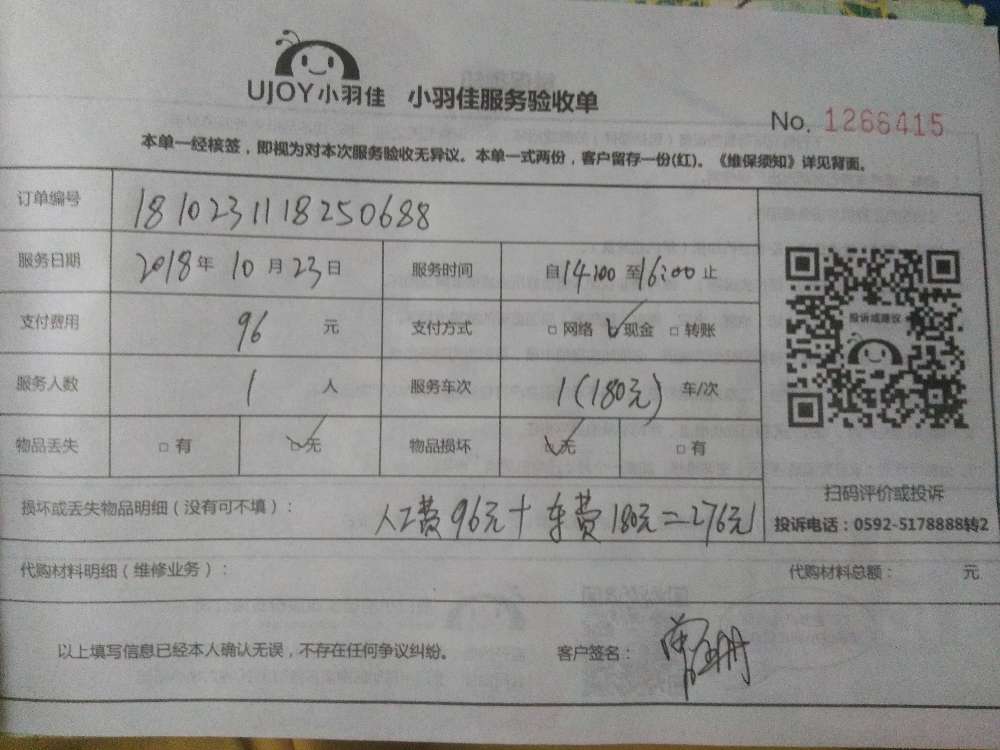 UJOY小羽佳 小羽佳服务验收单
No. 1266415
本单一经核签，即视为对本次服务验收无异议。本单一式两份，客户留存一份(红)。《维保须知》详见背面。
订单编号 1810231118250688
服务日期 2018年10月23日 服务时间 自14:00至16:00止
支付费用 96 元 支付方式 □网络 ☑现金 □转账
服务人数 1 人 服务车次 1(180元) 车/次
物品丢失 □有 ☑无 物品损坏 ☑无 □有
投诉或建议
扫码评价或投诉
投诉电话：0592-5178888转2
损坏或丢失物品明细（没有可不填）： 人工费96元+车费180元=276元
代购材料明细（维修业务）： 代购材料总额： 元
以上填写信息已经本人确认无误，不存在任何争议纠纷。 客户签名：